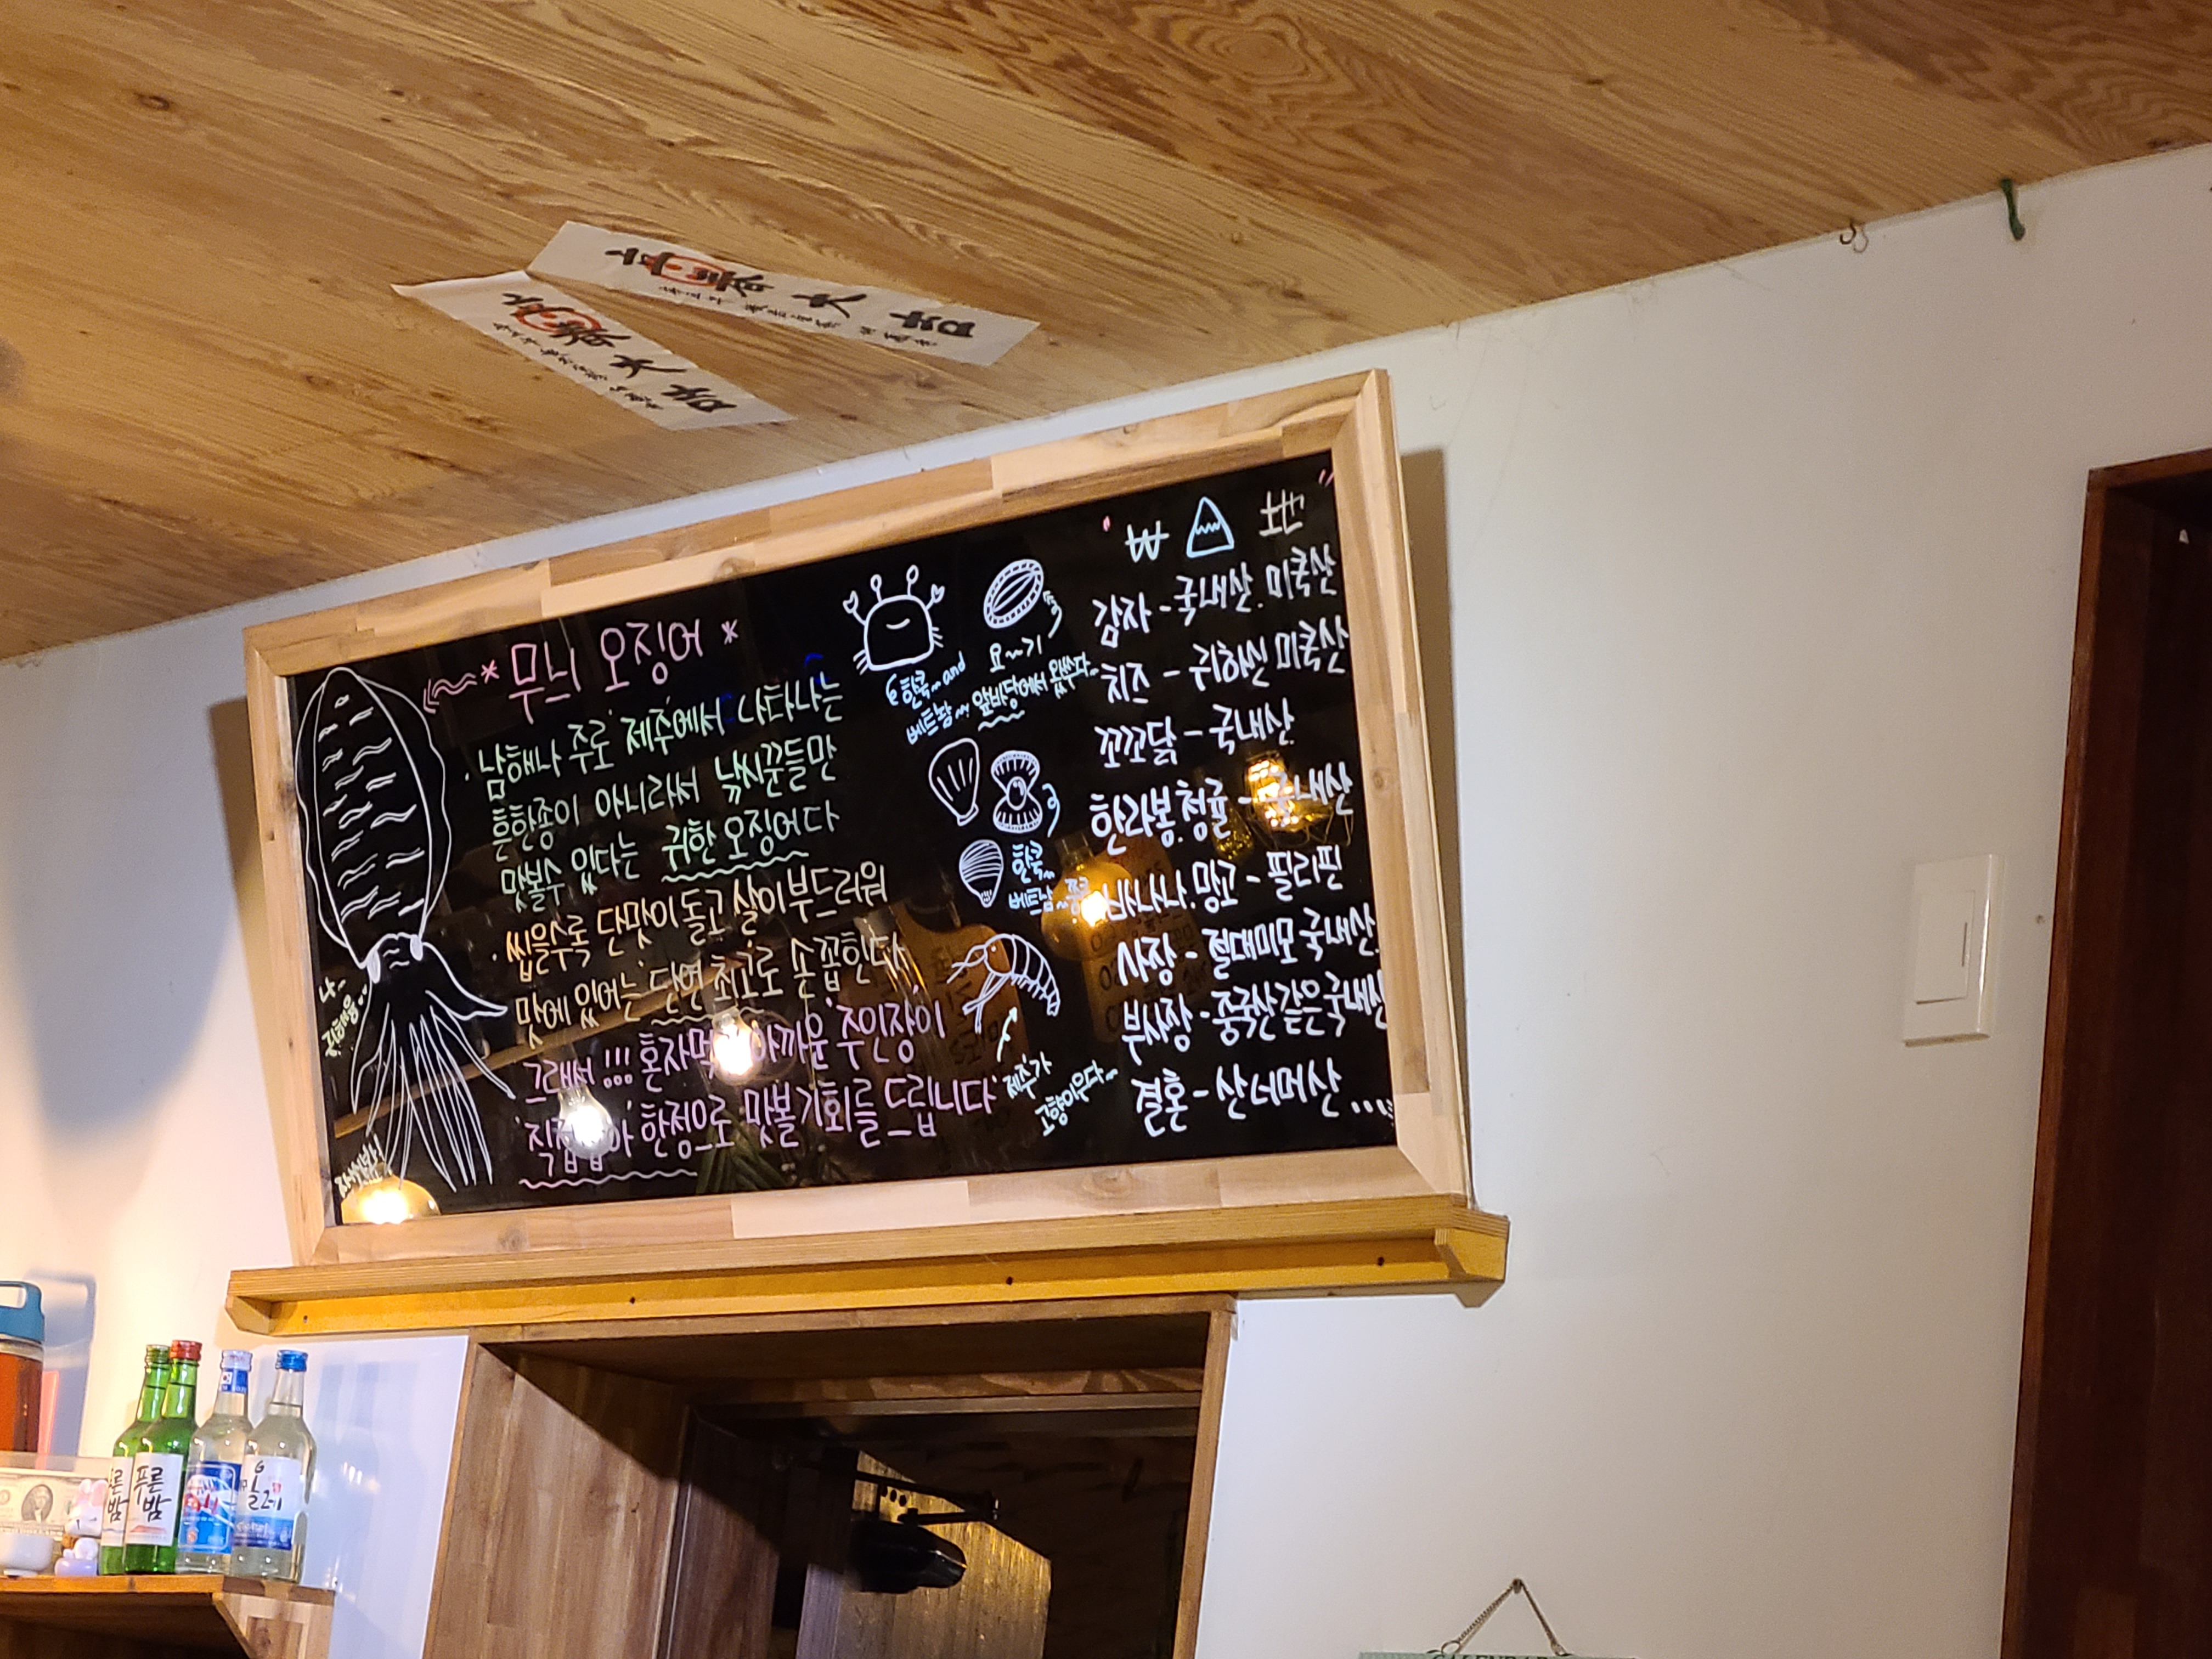 立春大吉
立春大吉
* 무늬 오징어 *
· 남해나 주로 '제주'에서 나타나는
흔한종이 아니라서 낚시꾼들만
맛볼수 있다는 귀한 오징어다
· 씹을수록 단맛이 돌고 살이 부드러워
맛에 있어는 '단연 최고'로 손꼽한다
그래서 !!! 혼자먹 아까운 '주인장'이
한정으로 맛볼기회를 드립니다
나~
한국~ and
베트남~
요~기
앞바당에서 왔쑤다~
한국~
베트남~
제주가
고향이우다~
₩ 地
감자 - 국내산. 미국산
치즈 - 귀하신 미국산
꼬꼬닭 - 국내산
한라봉.청귤 - 국내산
바나나. 망고 - 필리핀
사장 - 절대미모 국내산
부사장 - 중국산같은국내산
결혼 - 산너머산 ....
푸른밤
푸른
밤